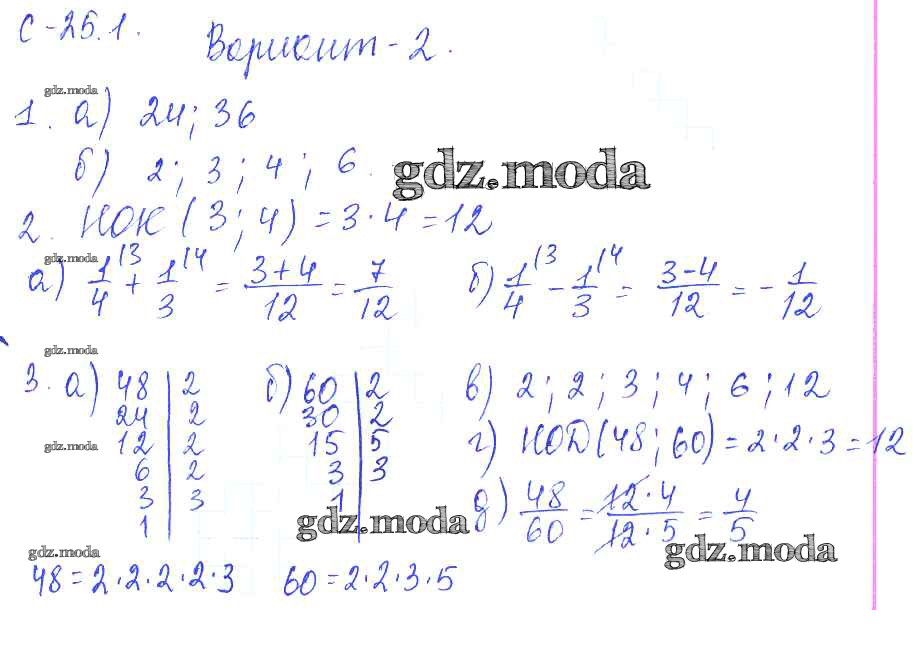 С-25.1.
Вариант-2.
gdz.moda
1. а) 24; 36
б) 2; 3; 4; 6.
gdz.moda
2. НОК(3; 4) = 3·4 = 12
gdz.moda
а) 1/4 |3 + 1/3 |4 = 3+4/12 = 7/12 б) 1/4 |3 - 1/3 |4 = 3-4/12 = -1/12
gdz.moda
3. а) 48 | 2 б) 60 | 2 в) 2; 2; 3; 4; 6; 12
24 | 2 30 | 2
gdz.moda 12 | 2 15 | 5 г) НОД(48; 60) = 2·2·3 = 12
6 | 2 3 | 3
3 | 3 1 | д) 48/60 = 12·4/12·5 = 4/5
1 |
gdz.moda
gdz.moda gdz.moda
48 = 2·2·2·2·3 60 = 2·2·3·5